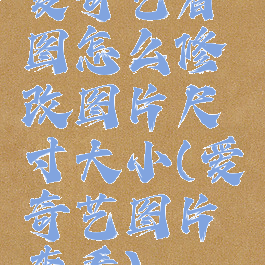 爱奇艺看
图怎么修
改图片尺
寸大小(爱
奇艺图片
查看)